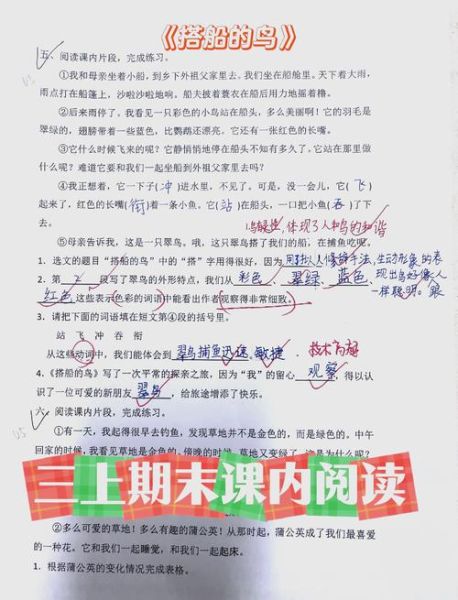 《搭船的鸟》
五、阅读课内片段，完成练习。
①我和母亲坐着小船，到乡下外祖父家里去。我们坐在船舱里。天下着大雨，
雨点打在船篷上，沙啦沙啦地响。船夫披着蓑衣在船后用力地摇着橹。
②后来雨停了。我看见一只彩色的小鸟站在船头，多么美丽啊！它的羽毛是
翠绿的，翅膀带着一些蓝色，比鹦鹉还漂亮。它还有一张红色的长嘴。
③它什么时候飞来的呢？它静悄悄地停在船头不知有多久了。它站在那里做
什么呢？难道它要和我们一起坐船到外祖父家里去吗？
④我正想着，它一下子(冲)进水里，不见了。可是，没一会儿，它(飞)
起来了，红色的长嘴(衔)着一条小鱼。它(站)在船头，一口把小鱼(吞)了下
去。
体现了人和鸟的和谐
⑤母亲告诉我，这是一只翠鸟。哦，这只翠鸟搭了我们的船，在捕鱼吃呢。
1. 选文的题目“搭船的鸟”中的“搭”字用得很好，因为用拟人修辞手法，生动形象的表
现出鸟好像人
一样聪明。
2. 第 2 段写了翠鸟的外形特点，我们从 彩色 、 翠绿 、 蓝色 、
红色 这些表示色彩的词语中能看出作者观察得非常细致。
3. 请把下面的词语填在短文第④段的括号里。
站 飞 冲 吞 衔
从这些动词中，我们能体会到 翠鸟捕鱼迅速，敏捷 技术高超
4.《搭船的鸟》写了一次平常的探亲之旅，因为“我”的留心 观察 ，得以认
识了一位可爱的新朋友 翠鸟 ，给旅途增添了快乐。
六、阅读课内片段，完成练习。
①有一天，我起得很早去钓鱼，发现草地并不是金色的，而是绿色的。中午
回家的时候，我看见草地是金色的。傍晚的时候，草地又变绿了。这是为什么呢？
三上期末课内阅读
②多么可爱的草地！多么有趣的蒲公英！从那时起，蒲公英成了我们最喜爱
的一种花。它和我们一起睡觉，和我们一起起床。
1. 根据蒲公英的变化情况完成表格。